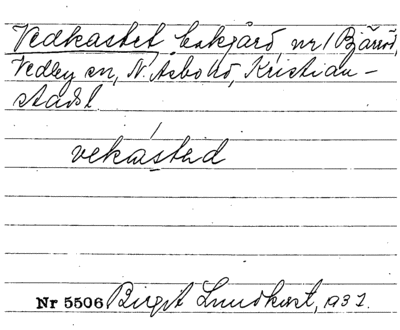 Vedkastet, bakgård, nr 1 Bjärröd,
Vedby sn, N. Åsbo hd, Kristian-
stads l.
vekástəd
Nr 5506 Birgit Lundkvist, 1932.